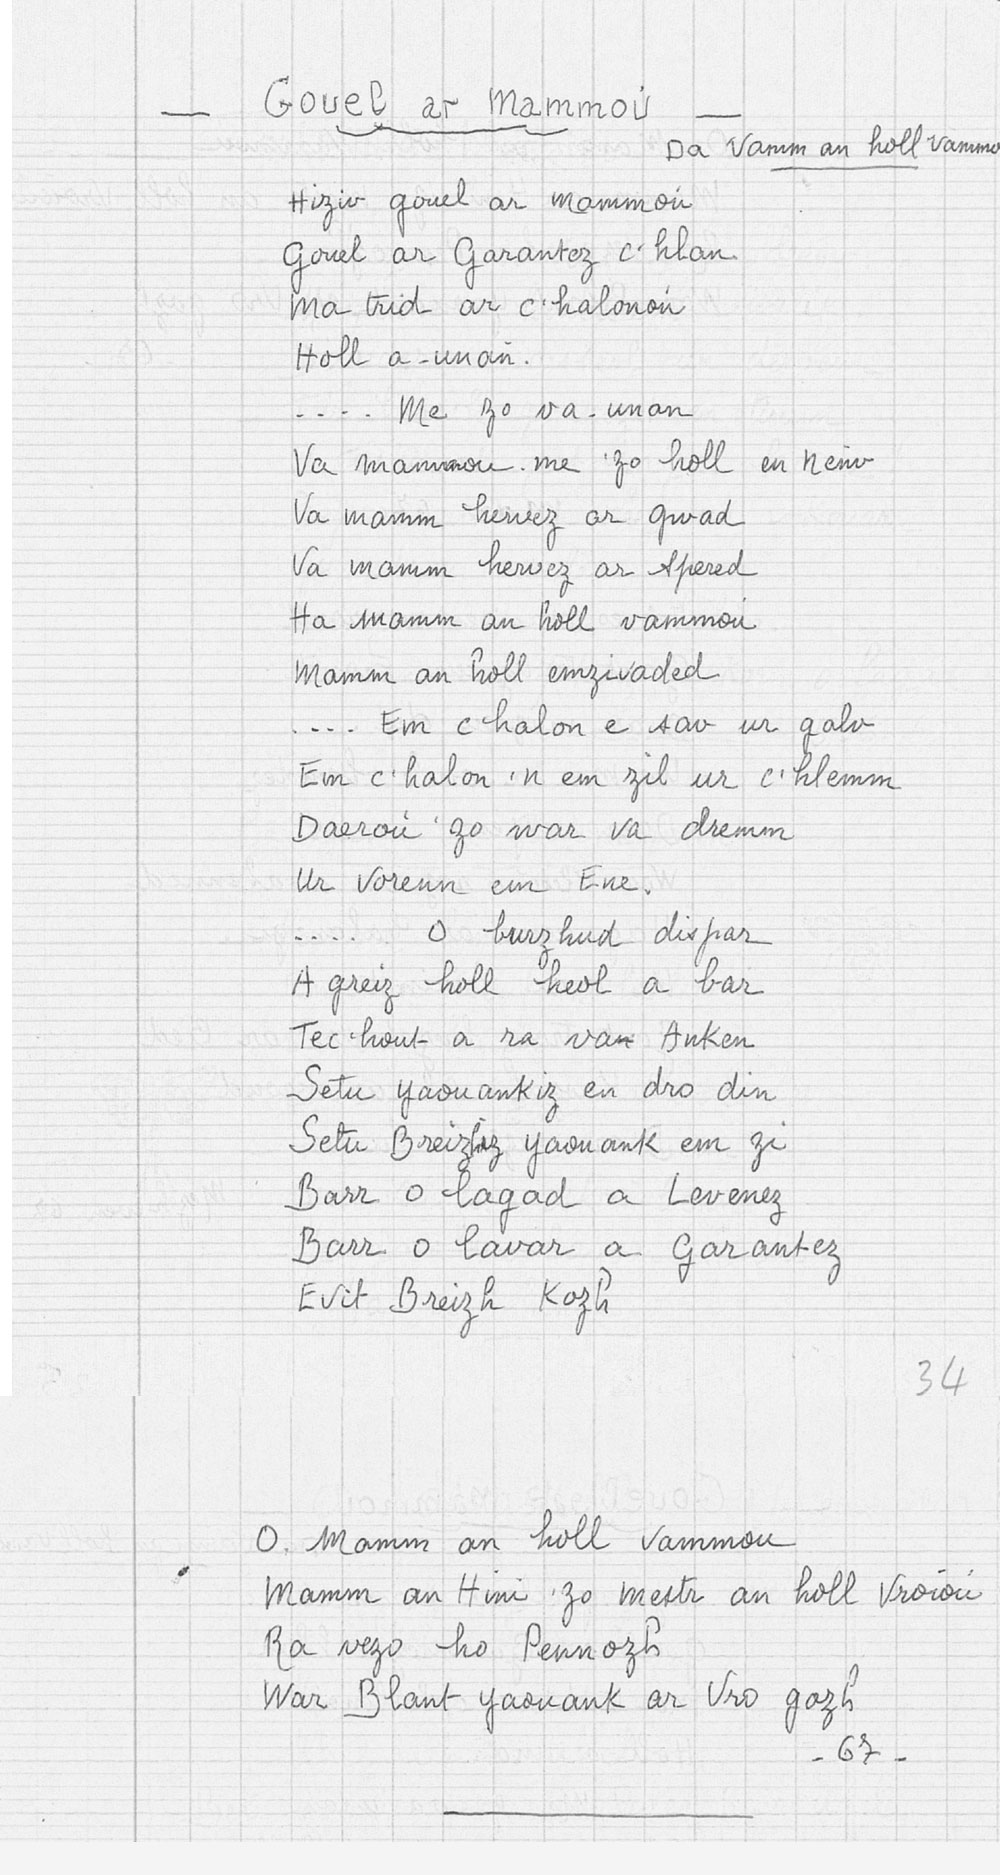 — Gouel ar Mammoù —
Da Vamm an holl Vammo
Hiziv gouel ar mammoù
Gouel ar Garantez c'hlan.
Ma trid ar c'halonoù
Holl a-unan.
.... Me zo va-unan
Va mammou-me 'zo holl en Nenv
Va mamm hervez ar gwad
Va mamm hervez ar spered
Ha mamm an holl vammoù
Mamm an holl emzivaded
.... Em c'halon e sav ur galv
Em c'halon 'n em zil ur c'hlemm
Daeroù 'zo war va dremm
Ur vorenn em Ene.
.... O burzhud dispar
A greiz holl heol a bar
Tec'hout a ra va Anken
Setu yaouankiz en dro din
Setu Breizhiz yaouank em zi
Barr o lagad a Levenez
Barr o lavar a Garantez
Evit Breizh Kozh
34
O. Mamm an holl Vammou
Mamm an Hini 'zo mestr an holl Vroioù
Ra vezo ho Pennozh
War Blant yaouank ar Vro gozh
- 67 -